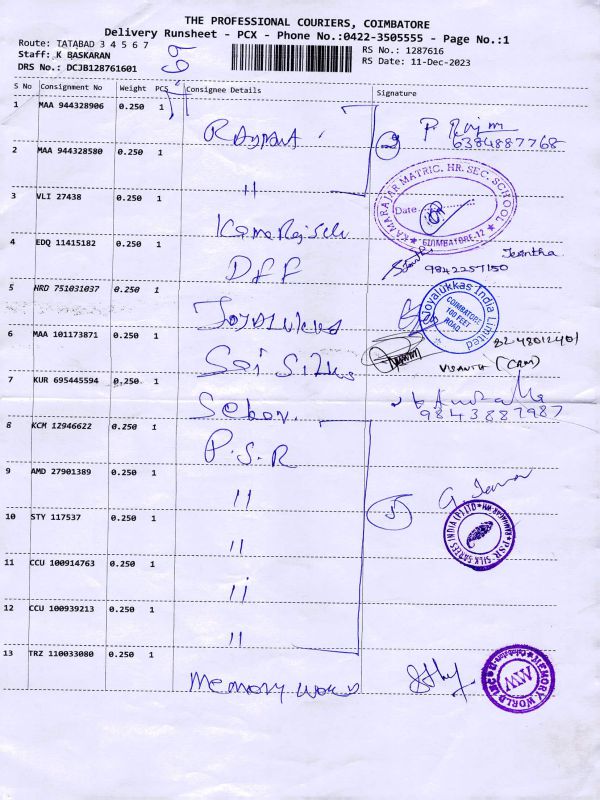 THE PROFESSIONAL COURIERS, COIMBATORE
Delivery Runsheet - PCX - Phone No.:0422-3505555 - Page No.:1
Route: TATABAD 3 4 5 6 7
Staff: K BASKARAN
DRS No.: DCJB128761601
RS No.: 1287616
RS Date: 11-Dec-2023
S No Consignment No Weight PCS Consignee Details Signature
1 MAA 944328906 0.250 1
6384887768
2 MAA 944328580 0.250 1 "
KAMARAJAR MATRIC. HR. SEC. SCHOOL
Date
COIMBATORE-12
3 VLI 27438 1
4 EDQ 11415182 0.250 1 DFF
9842257150
5 HRD 751031037 0.250 1
Joyalukkas India Limited
COIMBATORE
100 FEET
ROAD
6 MAA 101173871 0.250 1 Sai Silks
(CRM)
7 KUR 695445594 0.250 1
9843887987
8 KCM 12946622 0.250 1 P.S.R
9 AMD 27901389 0.250 1 "
10 STY 117537 0.250 1 "
PSR SILK SAREES INDIA (P) LTD
11 CCU 100914763 0.250 1 "
12 CCU 100939213 0.250 1 "
13 TRZ 110033080 0.250 1 Memory World
MEMORY WORLD
MW